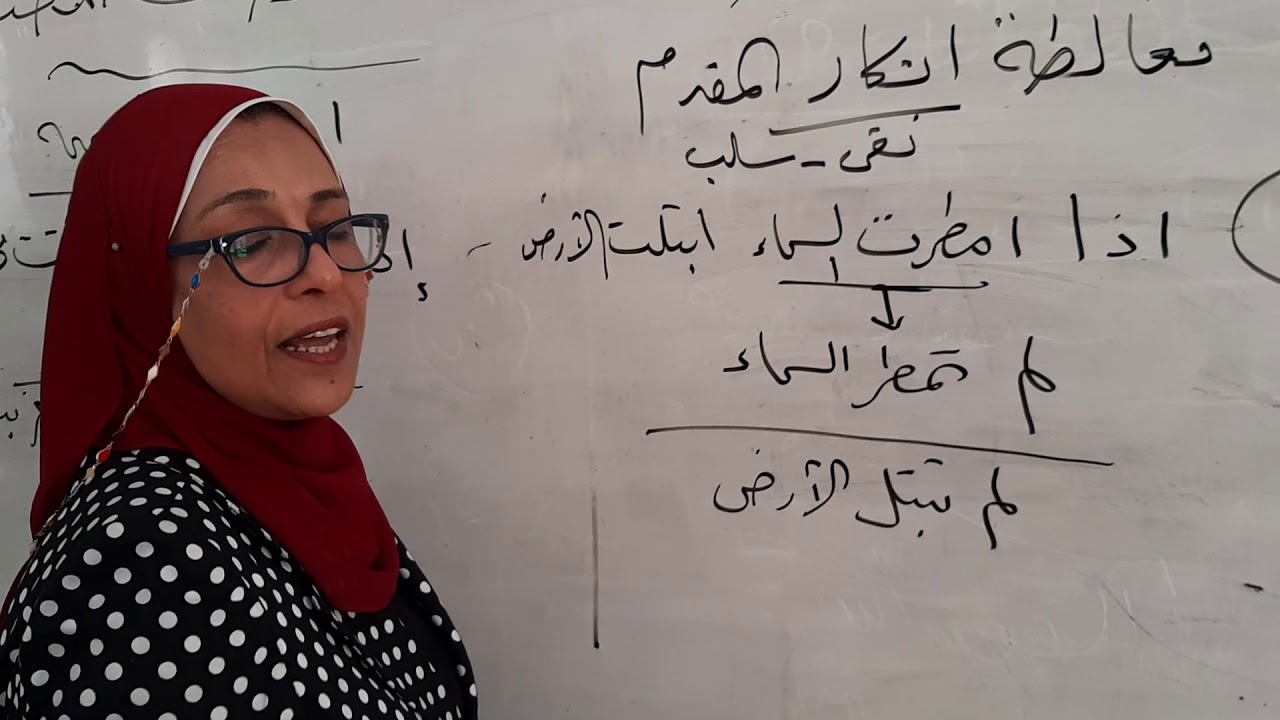 مغالطة انكار المقدم
نفى - سلب
اذا امطرت السماء ابتلت الأرض -
لم تمطر السماء
لم تبتل الأرض